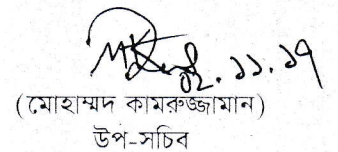 ০২.১১.১৭
(মোহাম্মদ কামরুজ্জামান)
উপ-সচিব